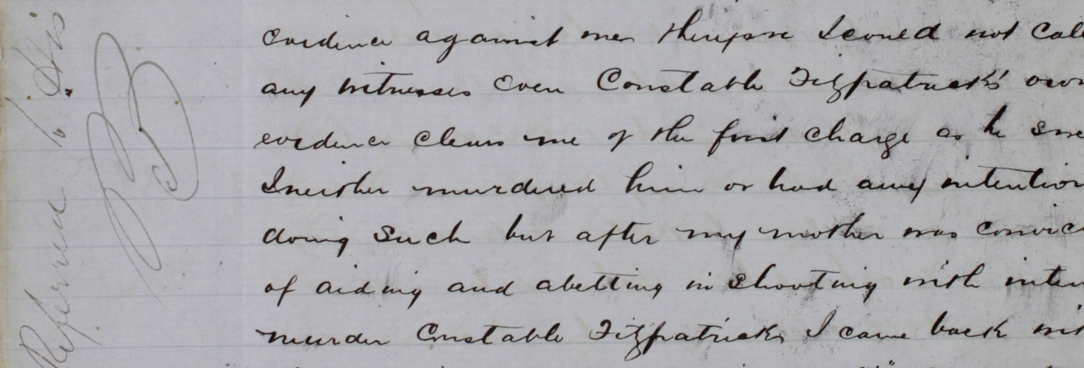 evidence against me therefore I could not call
any witnesses even Constable Fitzpatrick's own
evidence clears me of the first charge as he swe
I neither murdered him or had any intention
doing such but after my mother was convic
of aiding and abetting in shooting with inten
murder Constable Fitzpatrick I came back wit
Reference to His